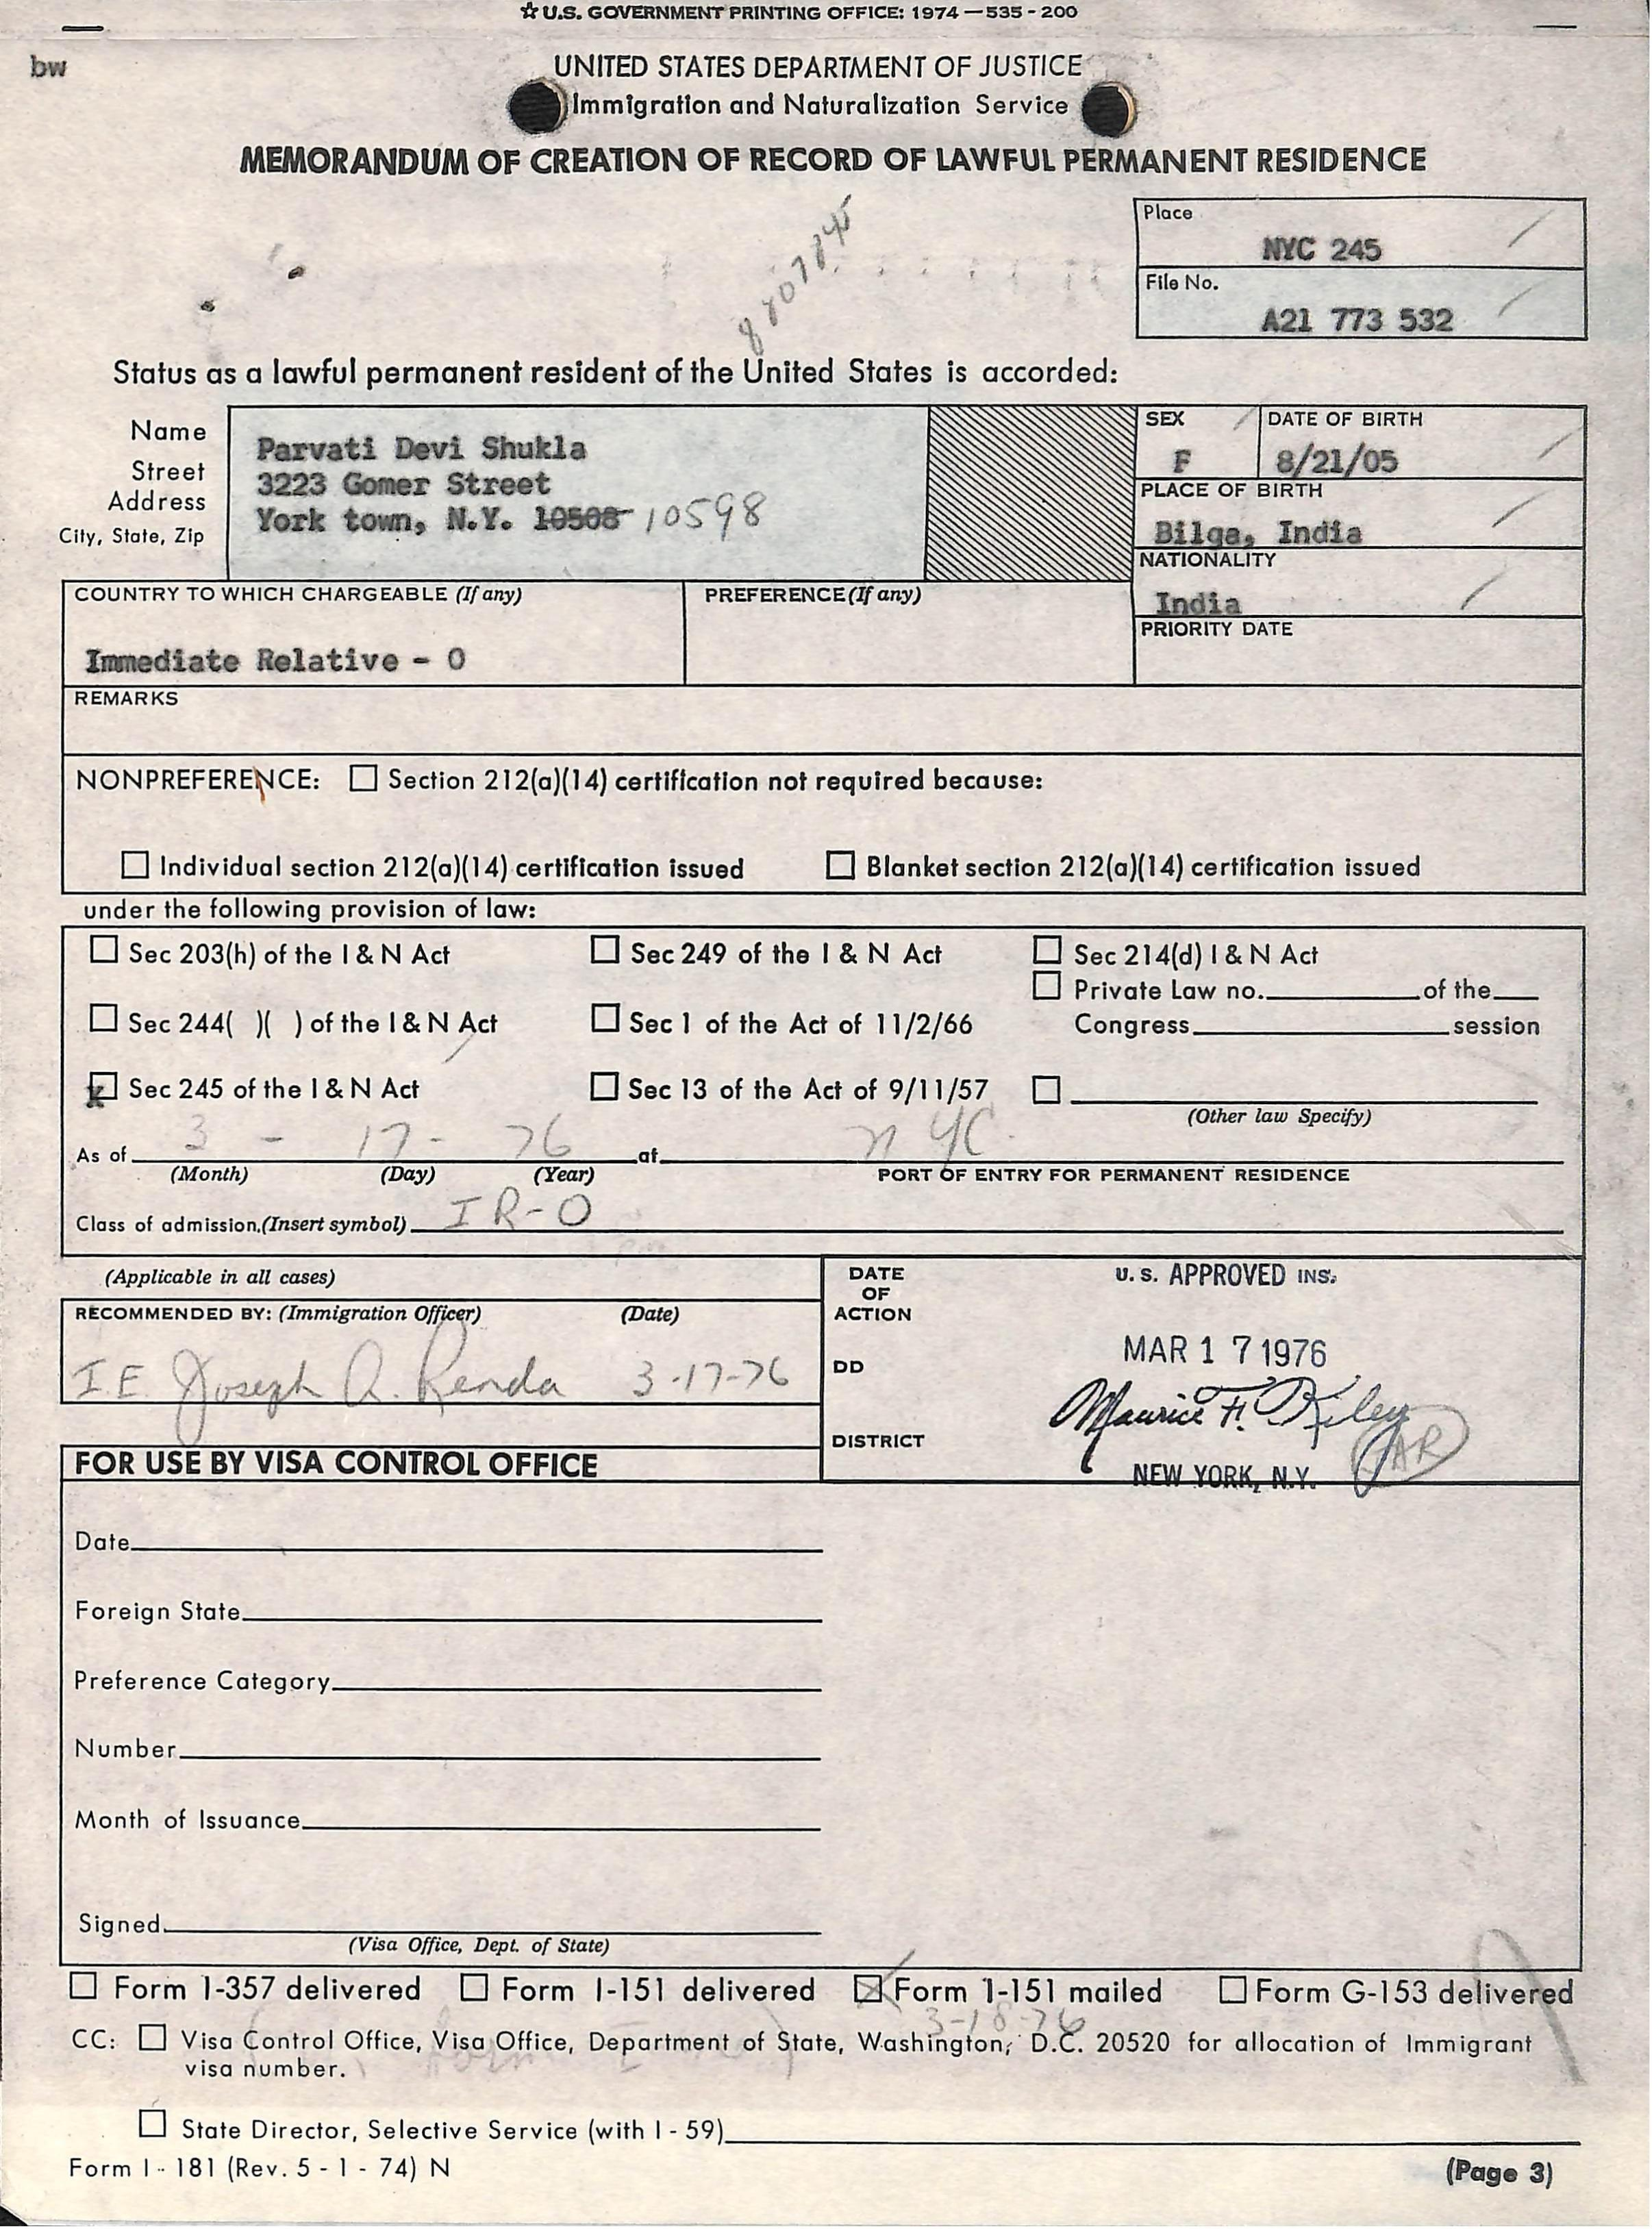 ☆ U.S. GOVERNMENT PRINTING OFFICE: 1974 — 535 - 200
bw
UNITED STATES DEPARTMENT OF JUSTICE
Immigration and Naturalization Service
MEMORANDUM OF CREATION OF RECORD OF LAWFUL PERMANENT RESIDENCE
Place
NYC 245
File No.
A21 773 532
Status as a lawful permanent resident of the United States is accorded:
Name
Street
Address
City, State, Zip
Parvati Devi Shukla
3223 Gomer Street
York town, N.Y. 10508 10598
SEX
F
DATE OF BIRTH
8/21/05
PLACE OF BIRTH
Bilga, India
NATIONALITY
India
PRIORITY DATE
COUNTRY TO WHICH CHARGEABLE (If any)
Immediate Relative - O
PREFERENCE (If any)
REMARKS
NONPREFERENCE: ☐ Section 212(a)(14) certification not required because:
☐ Individual section 212(a)(14) certification issued ☐ Blanket section 212(a)(14) certification issued
under the following provision of law:
☐ Sec 203(h) of the I & N Act ☐ Sec 249 of the I & N Act ☐ Sec 214(d) I & N Act
☐ Private Law no. of the
☐ Sec 244( )( ) of the I & N Act ☐ Sec 1 of the Act of 11/2/66 Congress session
☒ Sec 245 of the I & N Act ☐ Sec 13 of the Act of 9/11/57 ☐
(Other law Specify)
As of 3 - 17 - 76 at NYC.
(Month) (Day) (Year) PORT OF ENTRY FOR PERMANENT RESIDENCE
Class of admission.(Insert symbol) IR-O
(Applicable in all cases)
RECOMMENDED BY: (Immigration Officer) (Date)
I.E. Joseph A. Renda 3-17-76
DATE
OF
ACTION
DD
DISTRICT
U. S. APPROVED INS.
MAR 17 1976
Maurice F. Kiley
AR
NEW YORK, N.Y.
FOR USE BY VISA CONTROL OFFICE
Date
Foreign State
Preference Category
Number
Month of Issuance
Signed
(Visa Office, Dept. of State)
☐ Form I-357 delivered ☐ Form I-151 delivered ☒ Form I-151 mailed ☐ Form G-153 delivered
3-18-76
CC: ☐ Visa Control Office, Visa Office, Department of State, Washington, D.C. 20520 for allocation of Immigrant
visa number.
☐ State Director, Selective Service (with I - 59)
Form I - 181 (Rev. 5 - 1 - 74) N
(Page 3)